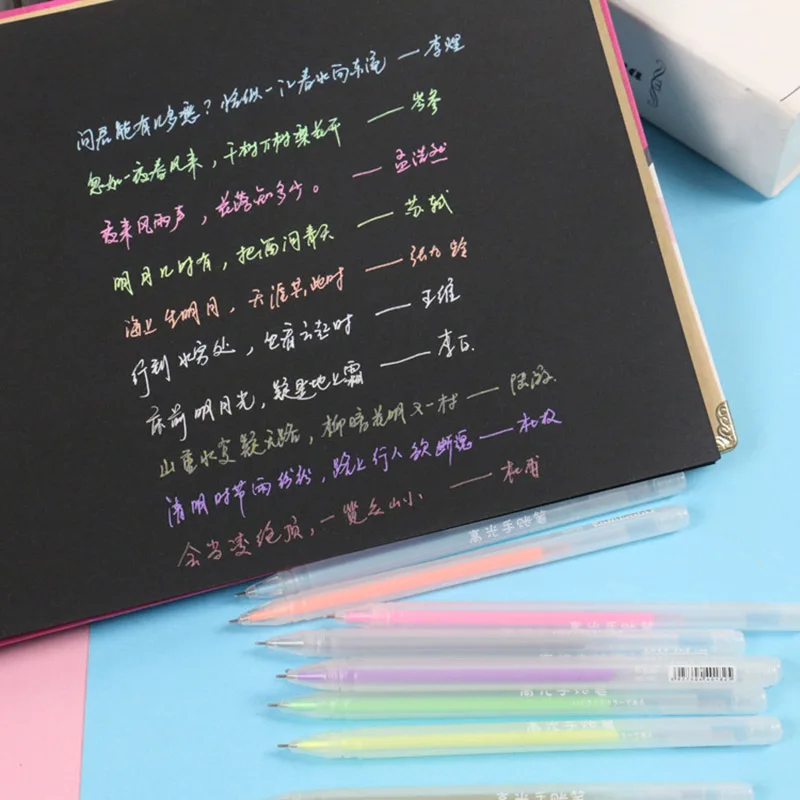 问君能有几多愁？恰似一江春水向东流 — 李煜
忽如一夜春风来，千树万树梨花开 — 岑参
夜来风雨声，花落知多少。 — 孟浩然
明月几时有，把酒问青天 — 苏轼
海上生明月，天涯共此时 — 张九龄
行到水穷处，坐看云起时 — 王维
床前明月光，疑是地上霜 — 李白
山重水复疑无路，柳暗花明又一村 — 陆游
清明时节雨纷纷，路上行人欲断魂 — 杜牧
会当凌绝顶，一览众山小 — 杜甫
高光手账笔
高光手账笔
高光手账笔
高光手账笔
高光手账笔